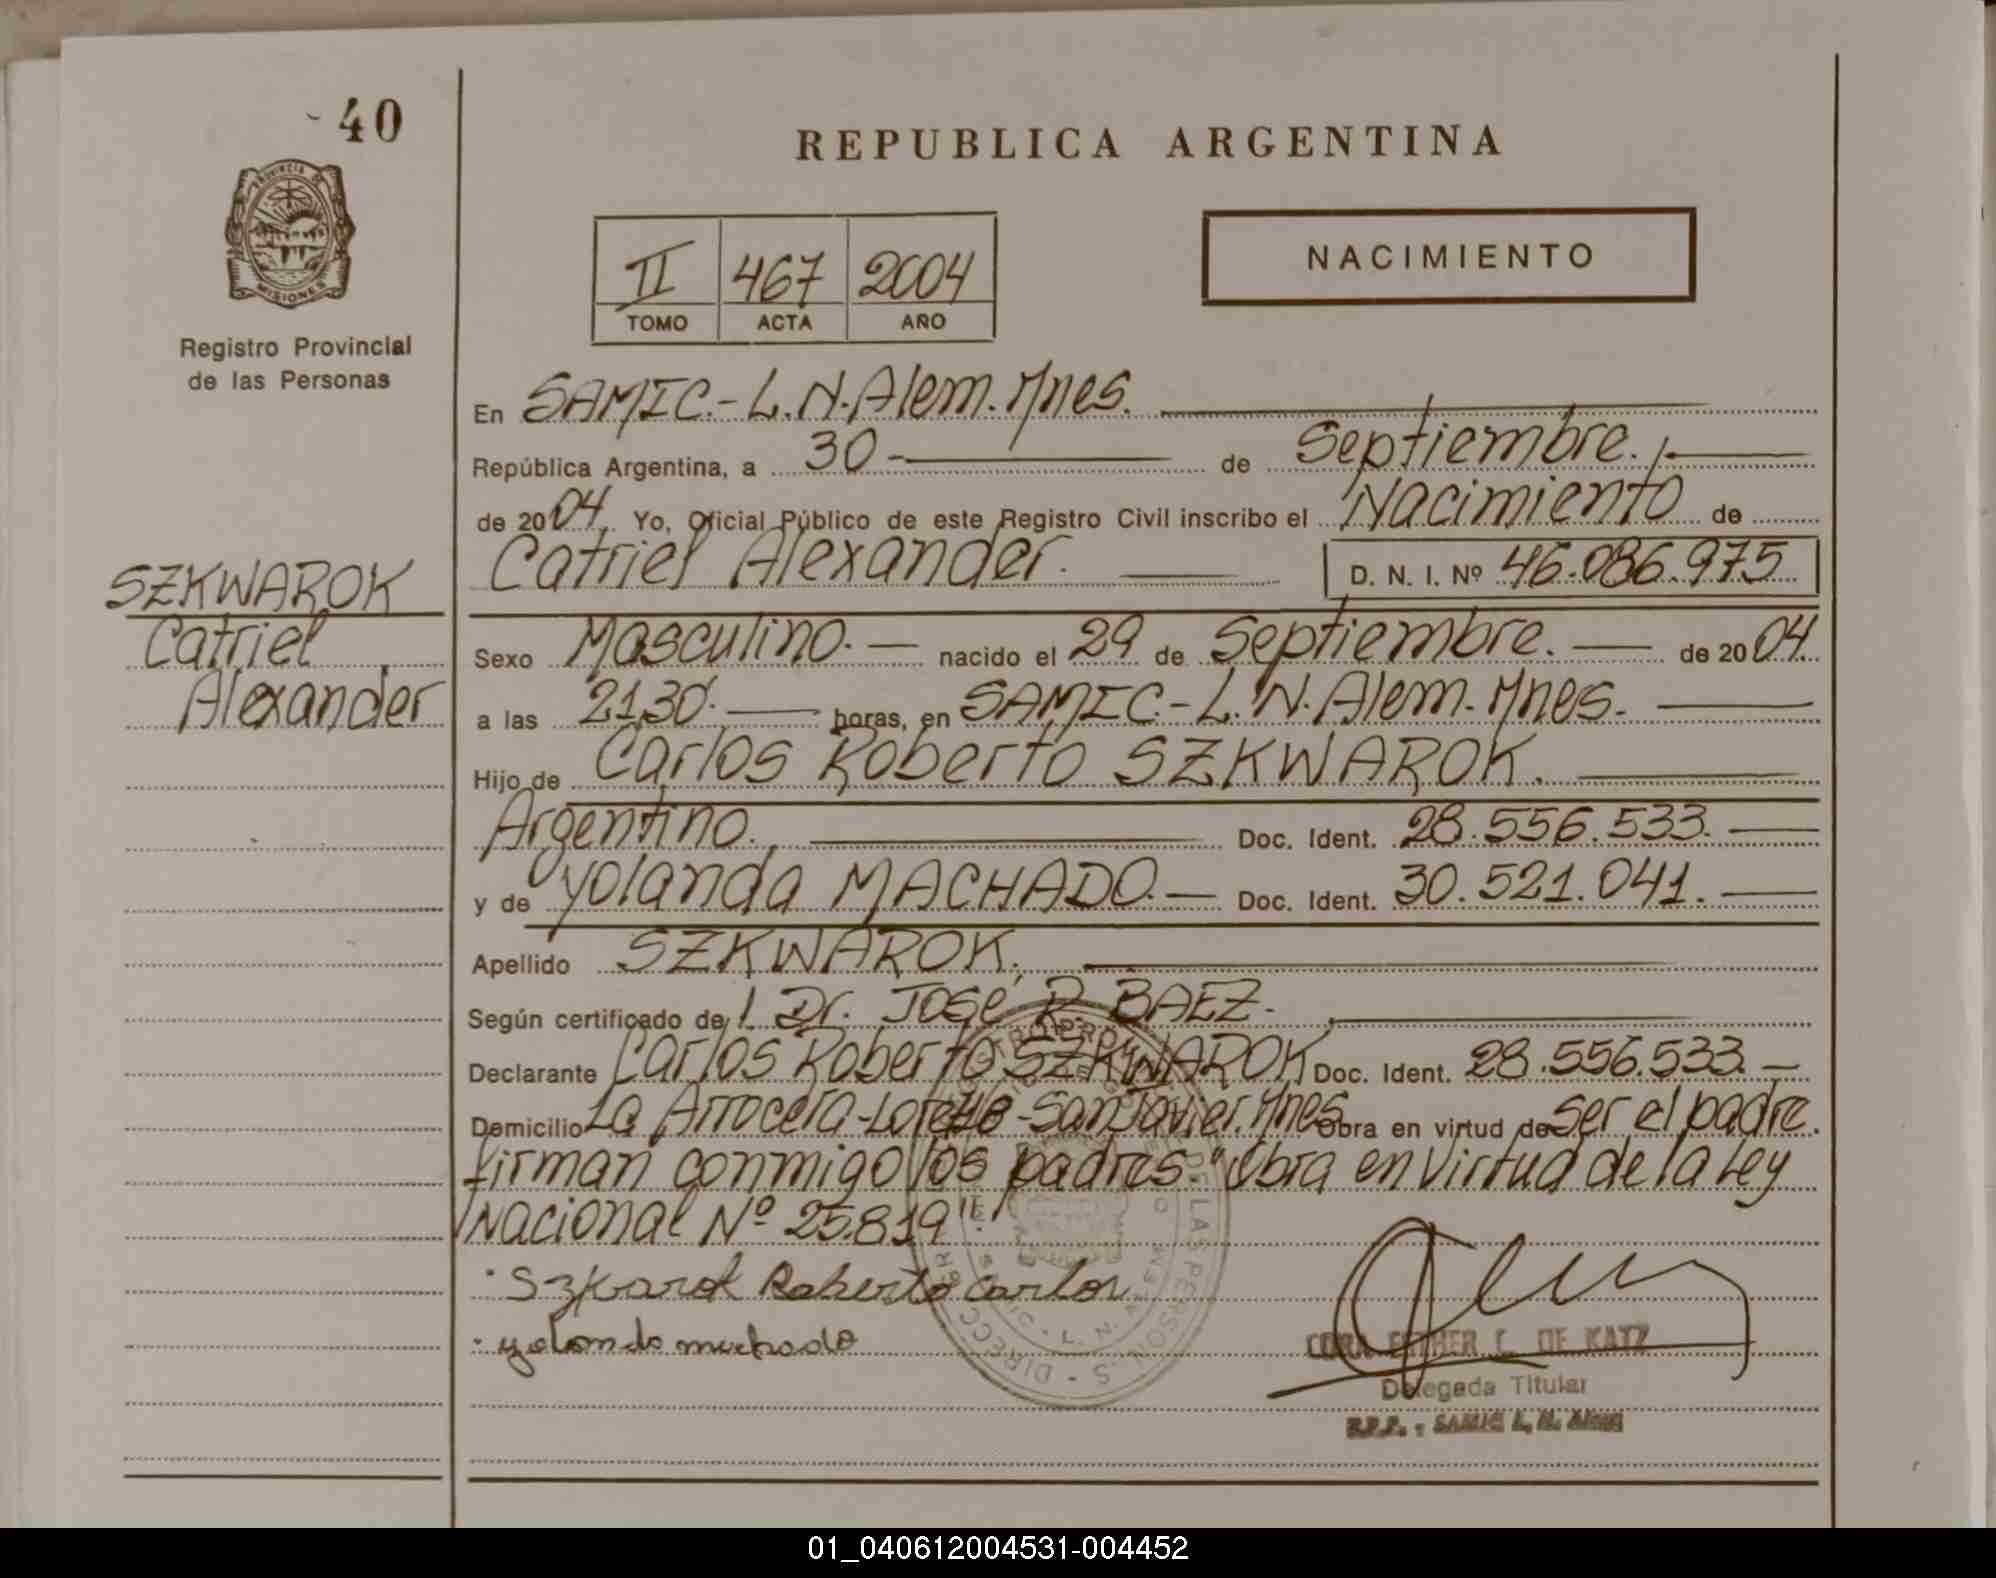 40
REPUBLICA ARGENTINA
PROVINCIA DE
MISIONES
Registro Provincial
de las Personas
II 467 2004
TOMO ACTA AÑO
NACIMIENTO
En SAMIC.-L.N.Alem.Mnes.
República Argentina, a 30- de Septiembre.
de 2004. Yo, Oficial Público de este Registro Civil inscribo el Nacimiento de
Catriel Alexander. D. N. I. Nº 46.086.975
SZKWAROK
Catriel
Alexander
Sexo Masculino. nacido el 29 de Septiembre. de 2004.
a las 21,30. horas, en SAMIC.-L.N.Alem.Mnes.
Hijo de Carlos Roberto SZKWAROK.
Argentino. Doc. Ident. 28.556.533.
y de Yolanda MACHADO. Doc. Ident. 30.521.041.
Apellido SZKWAROK.
Según certificado de Dr. José R. BAEZ.
Declarante Carlos Roberto SZKWAROK Doc. Ident. 28.556.533.
Domicilio La Arrocera-Loreto-San Javier.Mnes Obra en virtud de ser el padre.
firman conmigo los padres "Obra en Virtud de la Ley
Nacional Nº 25.819".
Szkwarok Roberto Carlos
yolanda machado
CORA ESTHER C. DE KATZ
Delegada Titular
R.P.P. - SAMIC L. N. ALEM
01_040612004531-004452